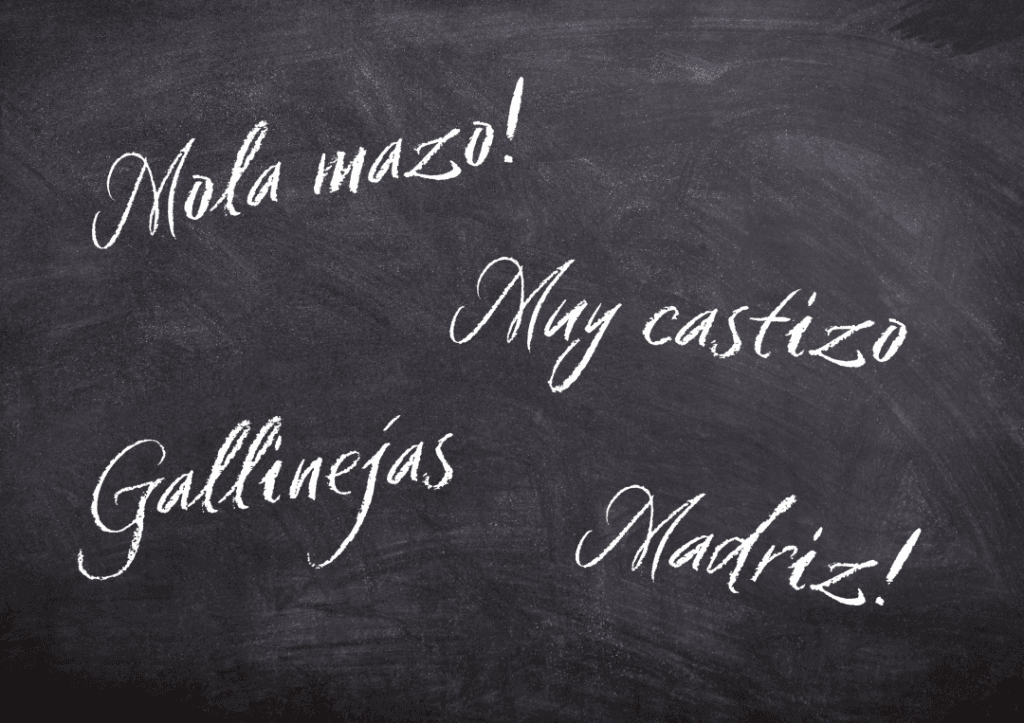 Mola mazo!
Muy castizo
Gallinejas
Madriz!